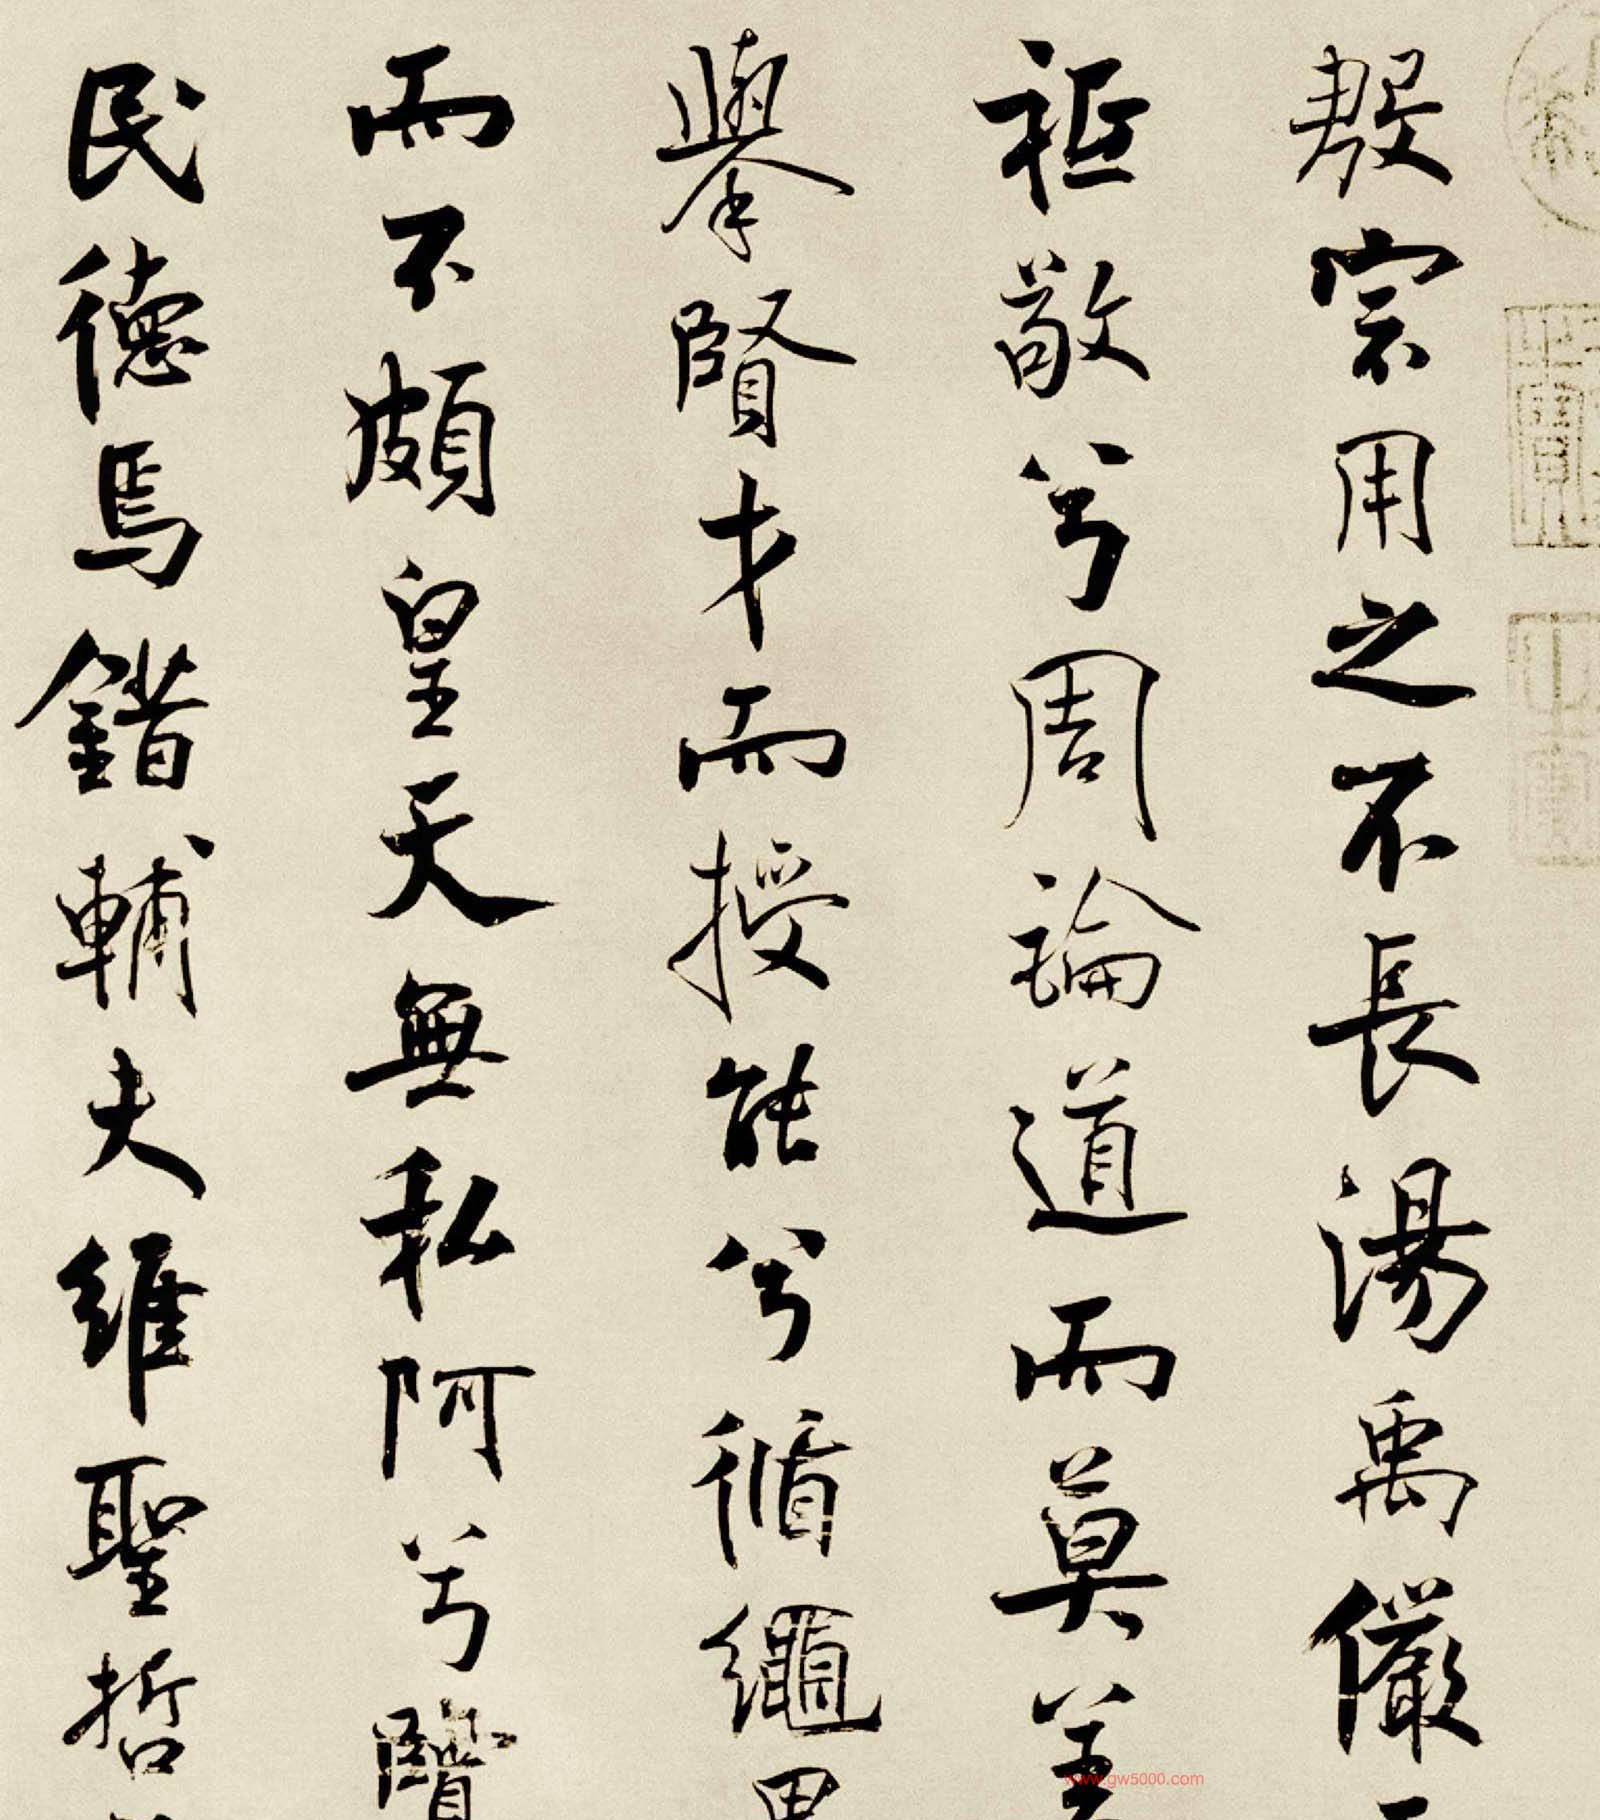 殷宗用之不長湯禹儼
祗敬兮周論道而莫差
舉賢才而授能兮循繩墨
而不頗皇天無私阿兮覽
民德焉錯輔夫維聖哲
www.gw5000.com